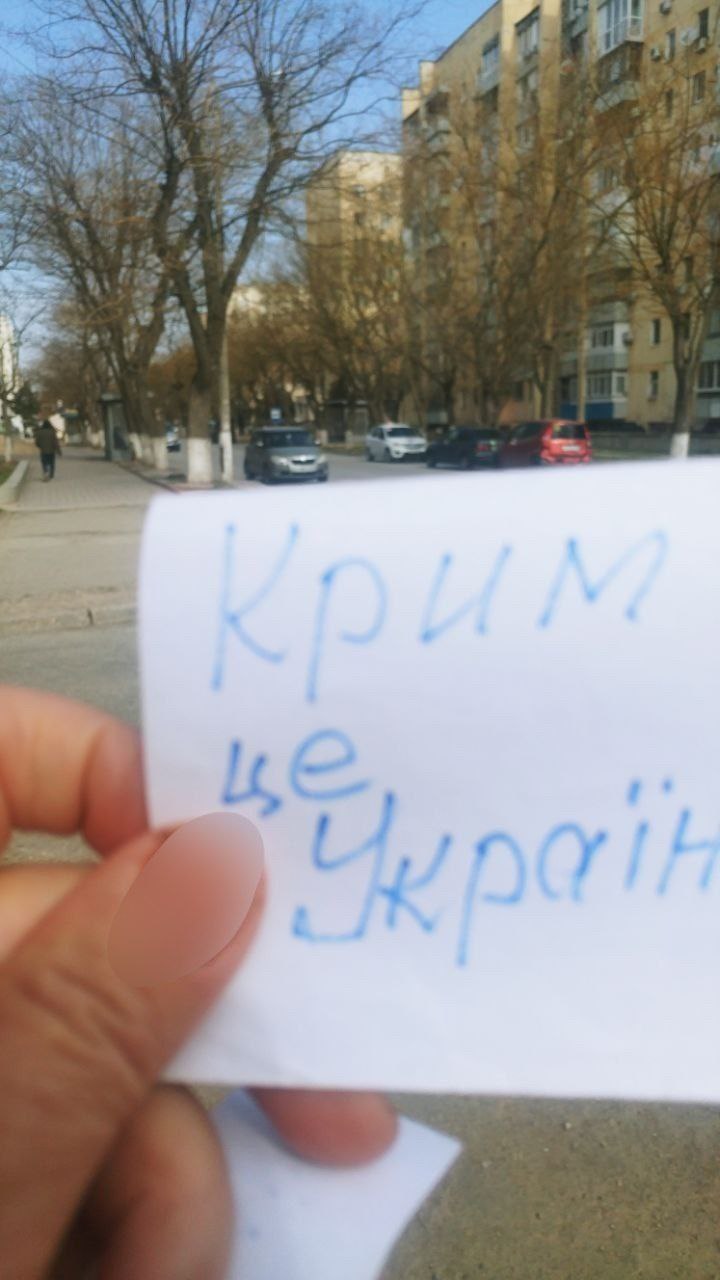 Крим
це
Україн